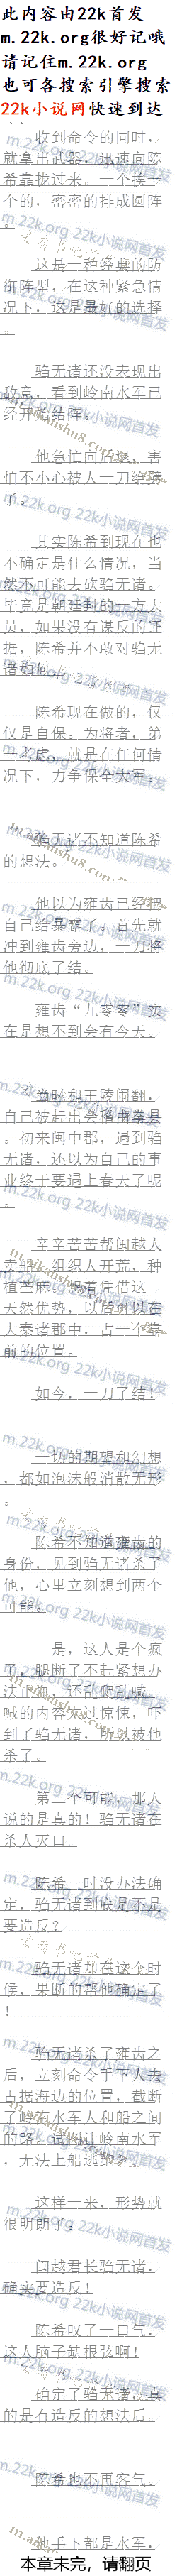 此内容由22k首发
m.22k.org很好记哦
请记住m.22k.org
也可各搜索引擎搜索
22k小说网快速到达
收到命令的同时，
就拿出武器，迅速向陈
希靠拢过来。一个挨一
个的，密密的排成圆阵
。
这是一种经典的防
御阵型，在这种紧急情
况下，这是最好的选择
。
驺无诸还没表现出
敌意，看到岭南水军已
经开始结阵。
他急忙向后退，害
怕不小心被人一刀给劈
了。
其实陈希到现在也
不确定是什么情况，当
然不可能去砍驺无诸。
毕竟是朝廷封的一方大
员，如果没有谋反的证
据，陈希并不敢对驺无
诸如何。
陈希现在做的，仅
仅是自保。为将者，第
一考虑，就是在任何情
况下，力争保全大军。
驺无诸不知道陈希
的想法。
他以为雍齿已经把
自己给暴露了，首先就
冲到雍齿旁边，一刀将
他彻底了结。
雍齿“九零零”实
在是想不到会有今天。
当时和王陵闹翻，
自己被赶出会稽出秦县
。初来闽中郡，遇到驺
无诸，还以为自己的事
业终于要遇上春天了呢
。
辛辛苦苦帮闽越人
卖船，组织人开荒，种
植芝麻。想着凭借这一
天然优势，以后可以在
大秦诸郡中，占一个靠
前的位置。
如今，一刀了结！
一切的期望和幻想
，都如泡沫般消散无形
。
陈希不知道雍齿的
身份，见到驺无诸杀了
他，心里立刻想到两个
可能。
一是，这人是个疯
子，腿断了不赶紧想办
法止血，还乱爬乱喊。
喊的内容太过惊悚，吓
到了驺无诸，所以被他
杀了。
第二个可能，那人
说的是真的！驺无诸在
杀人灭口。
陈希一时没办法确
定，驺无诸到底是不是
要造反？
驺无诸却在这个时
候，果断的帮他确定了
！
驺无诸杀了雍齿之
后，立刻命令手下人去
占据海边的位置，截断
了岭南水军人和船之间
的路，试图让岭南水军
，无法上船逃跑。
这样一来，形势就
很明朗了。
闽越君长驺无诸，
确实要造反！
陈希叹了一口气，
这人脑子缺根弦啊！
确定了驺无诸，真
的是有造反的想法后。
陈希也不再客气。
他手下都是水军，
本章未完，请翻页